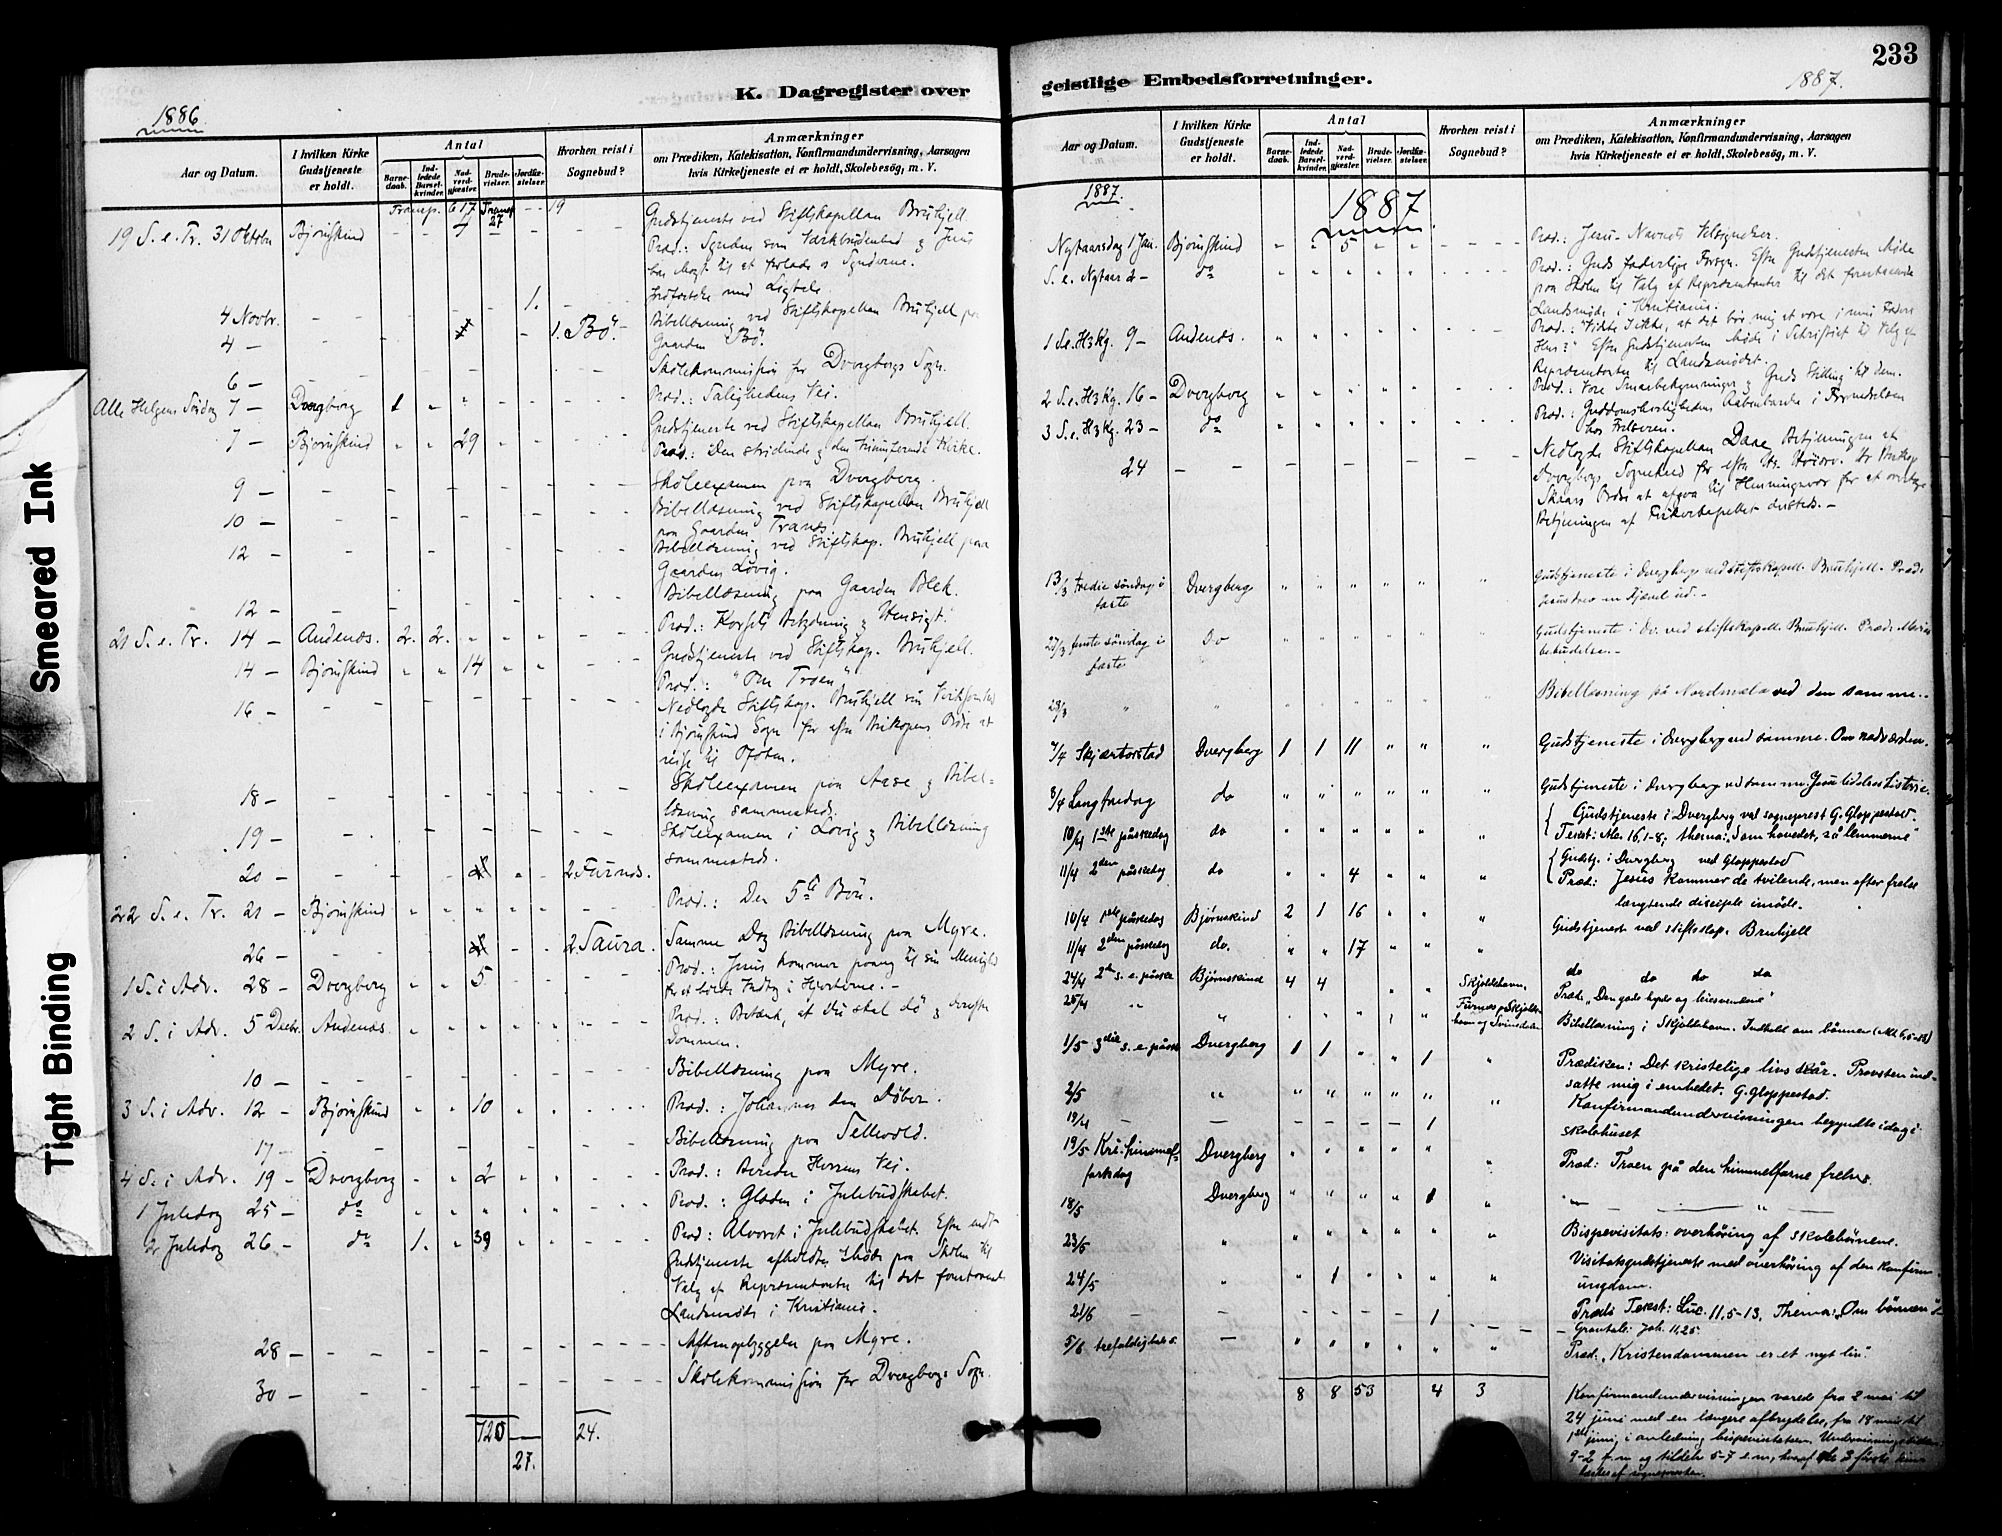 233
K. Dagregister over
geistlige Embedsforretninger.
1886
1887.
Aar og Datum.
I hvilken Kirke Gudstjeneste er holdt.
Antal
Barnedaab.
Indledede Barselkvinder.
Nadverdgjæster.
Brudevielser.
Jordfæstelser.
Hvorhen reist i Sognebud?
Anmærkninger
om Prædiken, Katekisation, Konfirmandundervisning, Aarsagen
hvis Kirketjeneste ei er holdt, Skolebesög, m. V.
Transp. 617 Transp 27 - - 19
Gudstjeneste ved Stiftskapellan Bruhjell.
19 S. e. Tr. 31 Oktober Bjørnskind
Præd.: Synden som
har Magt til at forlade os Synderne.
Jordfæstelse med Ligtale.
4 Novbr. 1.
Bibellæsning ved Stiftskapellan Bruhjell paa
4 - 1. Bö
Gaarden Bö.
6 -
Skolekommission for Dverbergs Sogn.
Alle Helgens Söndag 7 - Dverberg 1
Præd.: Salighedens Vei.
Gudstjeneste ved Stiftskapellan Bruhjell.
7 - Bjørnskind 29
Præd.: Den stridende og den triumferende Kirke.
9 -
Skoleexamen paa Dverberg.
10 -
Bibellæsning ved Stiftskapellan Bruhjell
paa Gaarden Tranes.
12 -
Bibellæsning ved Stiftskap. Bruhjell paa
Gaarden Lovig.
12 -
Bibellæsning paa Gaarden Blek.
21 S. e. Tr. 14 - Andenæs. 2. 2.
Præd.: Korsets Betydning og Hensigt.
14 - Bjørnskind 14
Gudstjeneste ved Stiftskap. Bruhjell.
Præd.: "Om Troen".
16 -
Nedlagde Stiftskap. Bruhjell sin Virksomhed
i Bjørnskind Sogn for efter Biskopens Ordre at
reise til Ofoten.
18 -
Skoleexamen paa Aase og Bibel-
læsning sammesteds.
19 -
Skoleexamen i Lovig og Bibellæsning
sammesteds.
20 - 2 Furnes.
22 S. e. Tr. 21 - Bjørnskind
Præd.: Den 5te Bön.
26 - 2 Saura.
Samme Dag Bibellæsning paa Myre.
1 S. i Adv. 28 - Dverberg 5
Præd.: Jesus kommer paany til sin Menighed
2 S. i Adv. 5 Decbr. Andenæs.
Præd.: Betænk, at du skal dö og derefter
Dommen.
10 -
Bibellæsning paa Myre.
3 S. i Adv. 12 - Bjørnskind 10
Præd.: Johannes den Döber.
17 -
Bibellæsning paa Sellevold.
4 S. i Adv. 19 - Dverberg 2
Præd.: Bereder Herrens Vej.
1 Juledag 25 - do
Præd.: Glæden i Julebudskabet.
2 Juledag 26 - do 1. 39
Præd: Alvoret i Julebudskabet. Efter endt
Gudstjeneste afholdtes Möde paa Skolen til
Valg af Repræsentanter til det forestaaende
Landsmöde i Kristiania.
28 -
Aftenopbyggelse paa Myre.
30 -
Skolekommission for Dverbergs Sogn.
720 24.
27.
1887.
1887
Nytaarsdag 1 Jan. Bjørnskind 5
Præd.: Jesu-Navnets Velsignelser.
S. e. Nytaar 2 - do
Præd.: Guds faderlige Forsyn. Efter Gudstjenesten Möde
paa Skolen til Valg af Repræsentanter til det forestaaende
Landsmöde i Kristiania.
1 S.e.H3kg. 9 - Andenæs.
Præd.: "Vidste I ikke, at det bör mig at være i min Faders
Hus?" Efter Gudstjenesten Möde i Skriftstet til Valg af
Repræsentanter til Landsmödet.
2 S.e. H3kg. 16 - Dverberg
Præd.: Vore Smaabekymringer og Guds Stilling til dem.
3 S. e. H3kg. 23 - do
Præd.: Guddomsherlighedens Aabenbarelse i Fornedrelsen
hos Frelseren.
24
Nedlagde Stiftskapellan Daae Betjeningen af
Dverbergs Sognekald for efter Hs. Höiærv. Hr Biskop
Skaars Ordre at afgaa til Henningsvær for at overtage
Betjeningen af Fiskerkapellet dersteds. -
13/3 tredie söndag i faste Dverberg
Gudstjeneste i Dverberg ved stiftskapell. Bruhjell. Præd:
Jesus drev en Djævel ud. -
27/3 femte söndag i faste Do
Gudstjeneste i Do. ved stiftskapell. Bruhjell. Præd: Mariæ
bebudelse. -
29/3
Bibellæsning på Nordmæla ved den samme. -
7/4 Skjærtorsdad Dverberg 1 1 11
Gudstjeneste i Dverberg ved samme. Om nadverden.
8/4 Langfredag do
Gudstjeneste i Dverberg ved samme. Jesu lidelses historie.
10/4 1ste påskedag do
Gudstjeneste i Dverberg ved sogneprest G. Gloppestad.
Tekst: Mr. 16,1-8; thema: "Som hovedet, så lemmerne"
11/4 2den påskedag do 4
Gudstj. i Dverberg ved Gloppestad
Præd: Jesus kommer de tvilende, men efter frelse
længtende disciple imöde.
10/4 1ste påskedag Bjørnskind 2 1 16
Gudstjeneste ved stiftskap. Bruhjell
11/4 2den påskedag do. 17
do do do do
24/4 2den s. e. påske Bjørnskind 4 4 Skjoldehavn
Præd: "Den gode hyrde og leiesvendene"
25/4 Furnes, Skjoldehavn og Svinedalen
Bibellæsning i Skjoldehavn. Indhold om bönnen
1/5 3die s. e. påske Dverberg 1 1 1
Prædiken: Det kristelige livs kår. Provsten ind-
satte mig i embedet. G. Gloppestad.
2/5
Konfirmandundervisningen begyndte idag i
skolehuset
19/4 1
19/5 Kri. himmelfartsdag Dverberg
Præd: Troen på den himmelfarne frelser.
18/5 Dverberg 1
23/5
Bispevisitats: overhöring af skolebörnene.
24/5 1
Visitatsgudstjeneste med overhöring af den konfirm.
ungdom.
21/6 1
Præds Tekst: Luc. 11,5-13. Thema: "Om bönnen"
Gravtale: Joh. 11,25.
5/6 trefoldigheds s.
Præd: "Kristendommen er et nyt liv."
8 8 53 4 3
Konfirmandundervisningen varede fra 2 mai til
24 juni med en længere afbrydelse, fra 18 mai til
1ste juni, i anledning bispevisitatsen. Undervisningstiden
9-2 f.m og tildels 5-7 e.m, hvoraf de 3 förste timer
læstes af sognepresten.
Smeared Ink
Tight Binding